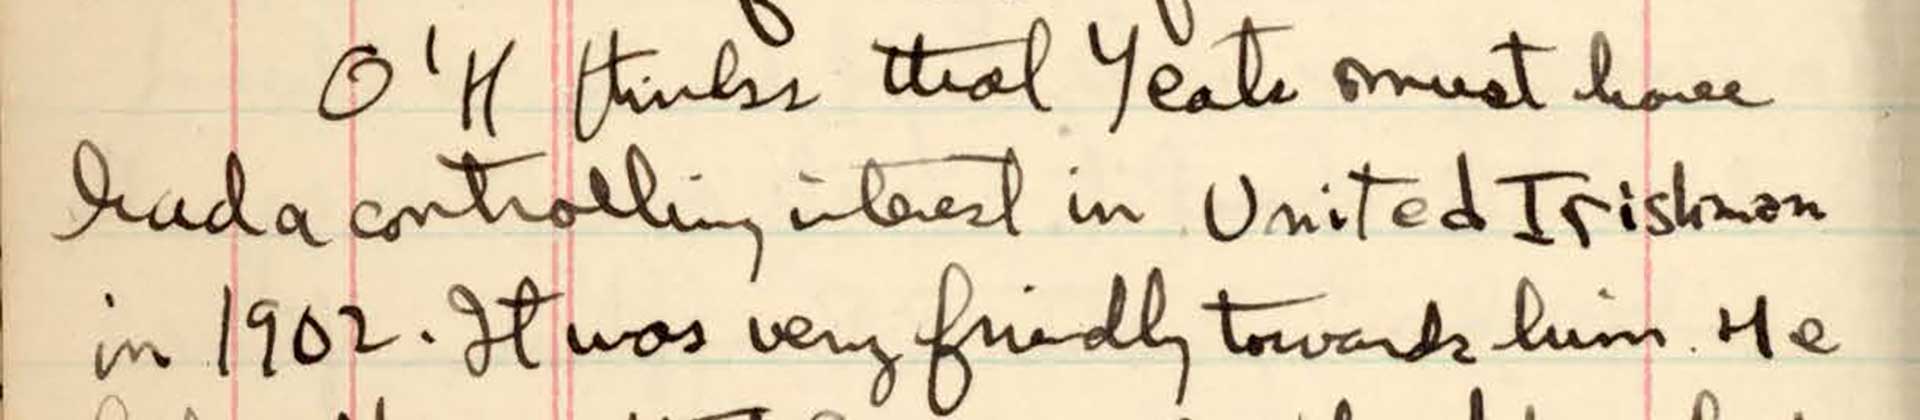 O'H thinks that Yeats must have
had a controlling interest in United Irishman
in 1902. It was very friendly towards him. He